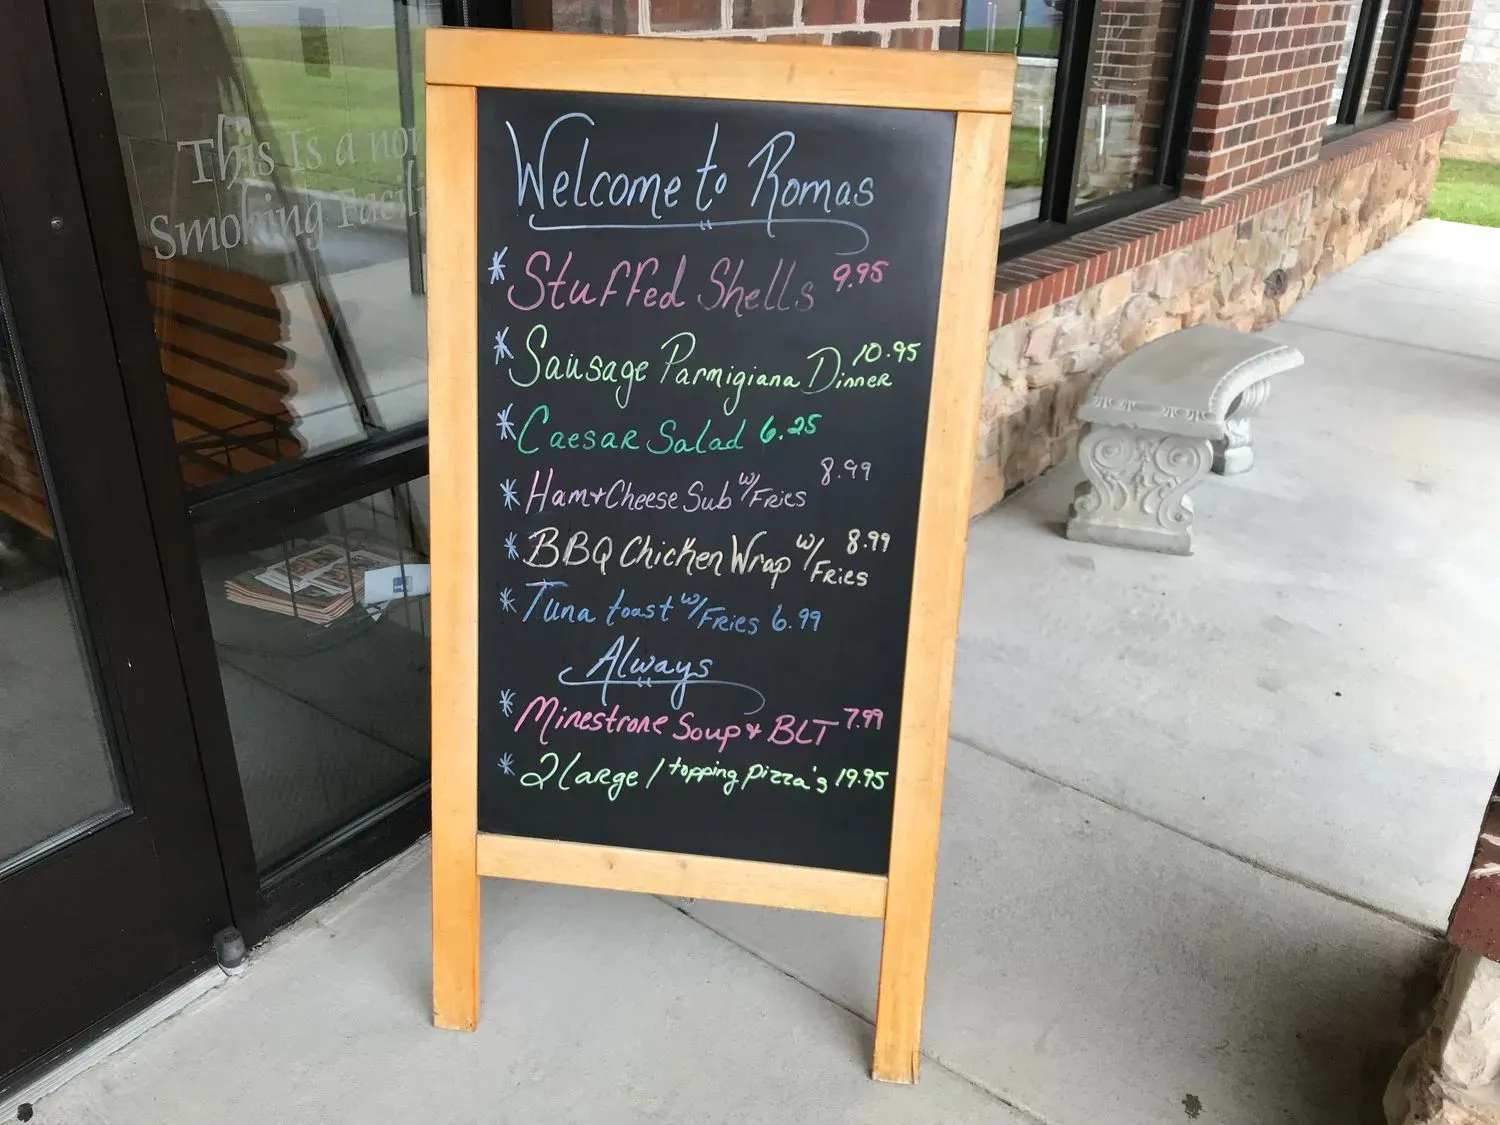 This Is a non
Smoking Facili
Welcome to Romas
* Stuffed Shells 9.95
* Sausage Parmigiana Dinner 10.95
* Caesar Salad 6.25
* Ham + Cheese Sub w/ Fries 8.99
* BBQ Chicken Wrap w/ Fries 8.99
* Tuna toast w/ Fries 6.99
Always
* Minestrone Soup + BLT 7.99
* 2 Large 1 topping pizza's 19.95